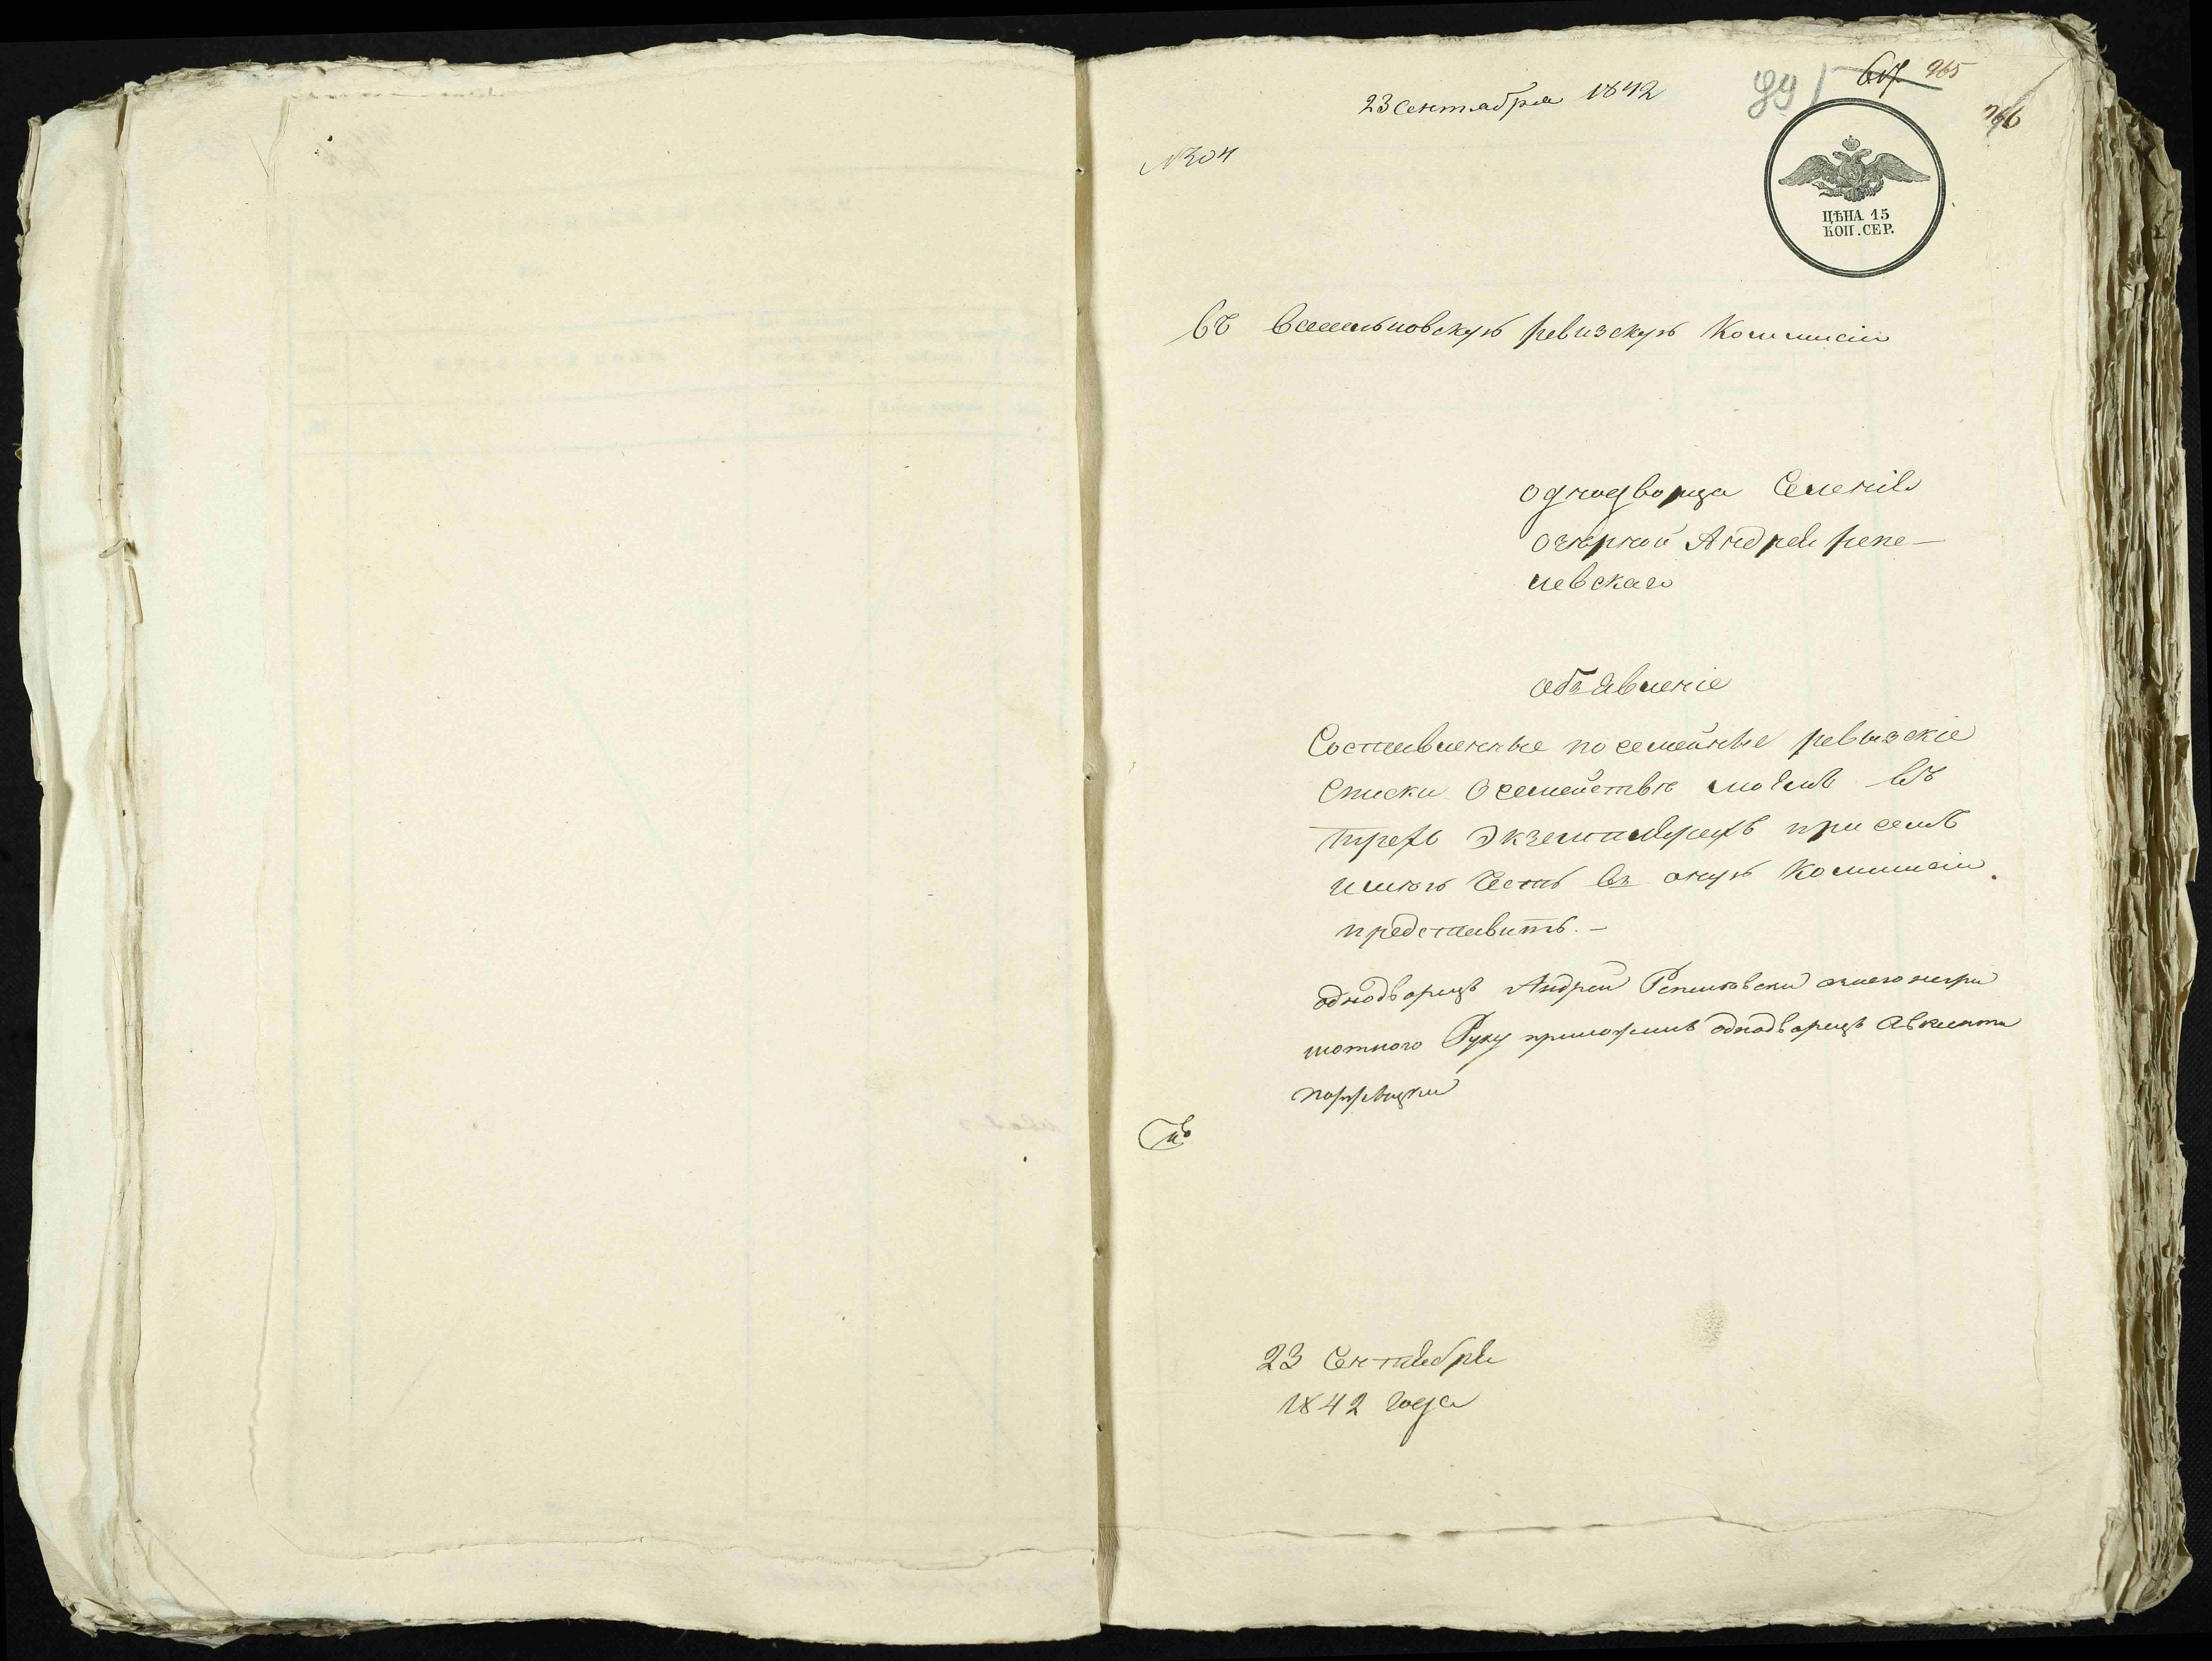 23 Сентября 1842
991 617 965
966
№304
ЦѢНА 15
КОП. СЕР.
въ Васильковскую ревизскую Коммисію
однодворца Селенія
озѣрной Андрея репе-
левскаго
объявленіе
Составленные посемейные ревызскіе
списки о семействѣ моемъ въ
трехъ Экземплярахъ при семъ
имѣю Честь въ оную Коммисію
представить. —
однодворецъ Андрей негра
мотного Руку приложилъ однодворецъ
23 Сентября
1842 года